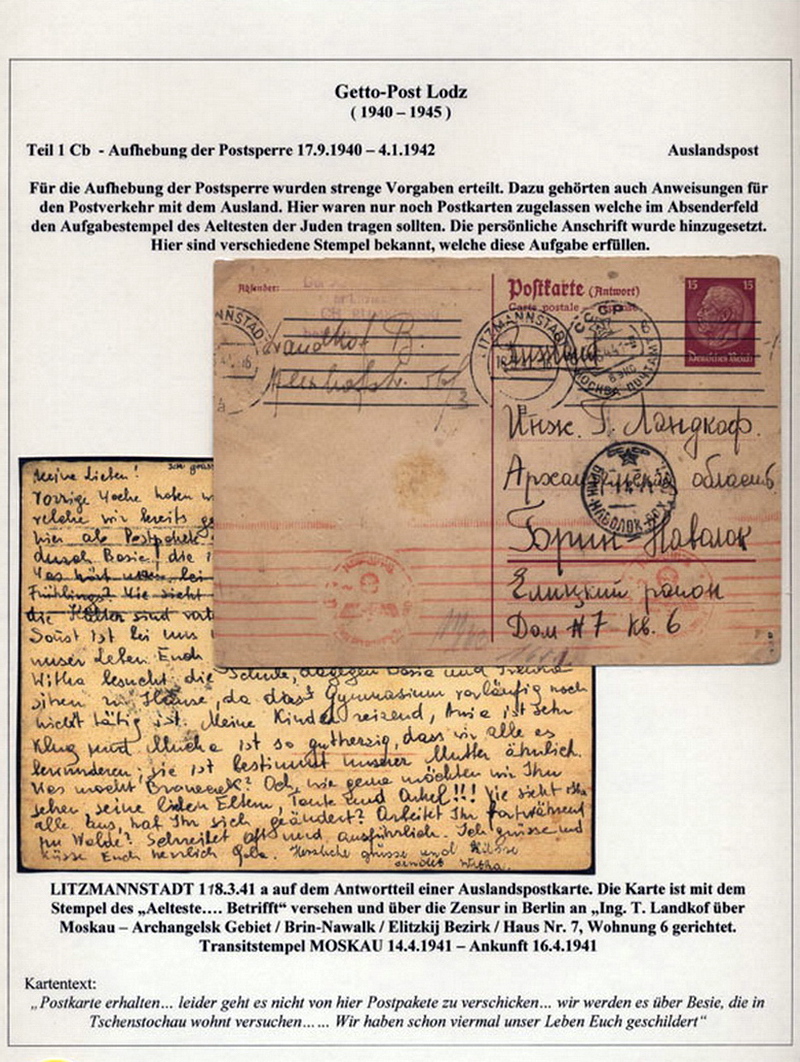 Getto-Post Lodz
( 1940 – 1945 )
Teil 1 Cb - Aufhebung der Postsperre 17.9.1940 – 4.1.1942 Auslandspost
Für die Aufhebung der Postsperre wurden strenge Vorgaben erteilt. Dazu gehörten auch Anweisungen für
den Postverkehr mit dem Ausland. Hier waren nur noch Postkarten zugelassen welche im Absenderfeld
den Aufgabestempel des Aeltesten der Juden tragen sollten. Die persönliche Anschrift wurde hinzugesetzt.
Hier sind verschiedene Stempel bekannt, welche diese Aufgabe erfüllen.
Absender:
Postkarte (Antwort)
Carte postale
15 15
Deutsches Reich
LITZMANNSTADT
СССР
МОСКВА
Ausland
B.
Инж. Т. Ландкоф.
область
Наволок
Елицкий район
Дом № 7 кв. 6
Meine Lieben!
Vorige Woche haben
welche wir bereits
hier als Postpakete
durch Besie, die
Frühlings? Wie sieht
die Kälter sind
Sonst ist bei uns
unser Leben Euch
Witka besucht die Schule, dagegen Dasia und
sitzen zu Hause, da das Gymnasium vorläufig noch
nicht tätig ist. Meine Kinder reizend, Ania ist sehr
klug und Mucha ist so gutherzig, dass wir alle es
bewunderen; sie ist bestimmt unserer Mutter ähnlich.
Was macht Och, wie gerne möchten wir Ihn
sehen, seine lieben Eltern, Tante und Onkel!!! Wie sieht Ihr
alle aus, hat Ihr sich geändert? Arbeitet Ihr fortwährend
im Walde? Schreibet oft und ausführlich. Ich grüsse und
küsse Euch herzlich Herzliche grüsse und Küsse
sendet Witka.
LITZMANNSTADT 1 18.3.41 a auf dem Antwortteil einer Auslandspostkarte. Die Karte ist mit dem
Stempel des „Aelteste…. Betrifft“ versehen und über die Zensur in Berlin an „Ing. T. Landkof über
Moskau – Archangelsk Gebiet / Brin-Nawalk / Elitzkij Bezirk / Haus Nr. 7, Wohnung 6 gerichtet.
Transitstempel MOSKAU 14.4.1941 – Ankunft 16.4.1941
Kartentext:
„Postkarte erhalten… leider geht es nicht von hier Postpakete zu verschicken… wir werden es über Besie, die in
Tschenstochau wohnt versuchen…… Wir haben schon viermal unser Leben Euch geschildert“